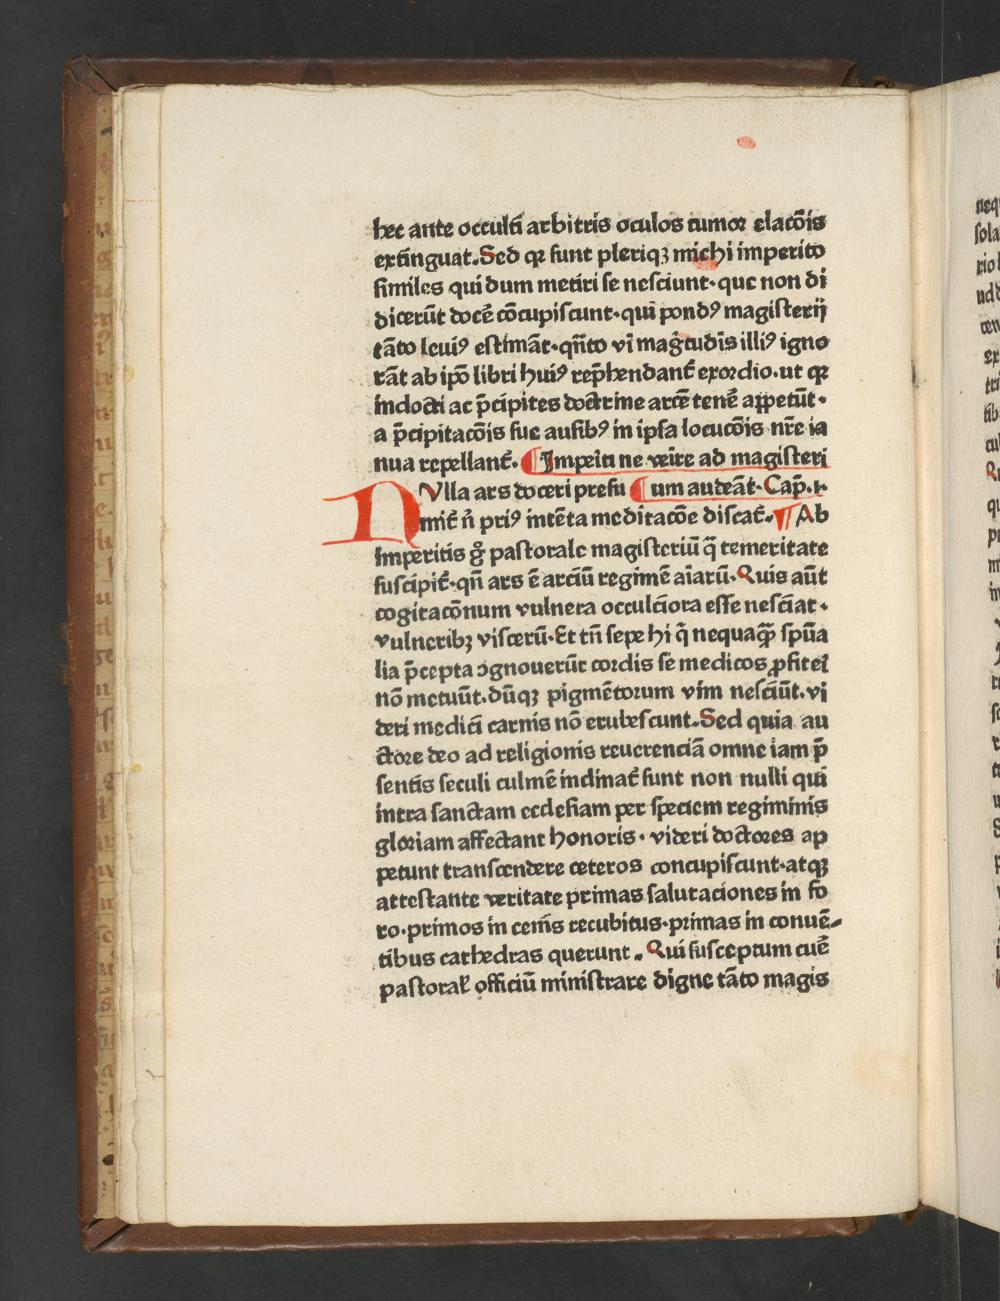 hec ante occulti arbitris oculos tumor elacōis
extinguat. Sed qꝛ sunt pleriqꝫ michi imperito
similes qui dum metiri se nesciunt· que non di
dicerūt docē cōcupiscunt· qui pondꝰ magisterij
tāto leuiꝰ estimāt· qn̄to vī maḡtudīs illiꝰ igno
rāt ab ip̄o libri huiꝰ rep̄hendant᷑ exordio. ut qꝛ
indocti ac p̄cipites doctrine arcē tenē appetūt·
a p̄cipitacōis sue ausibꝰ in ipsa locucōis nr̄e ia
nua repellant᷑. ¶ Impeīti ne veīre ad magisteri
NVlla ars doceri presu ¶ um audeāt· Cap̄. i·
mit᷑ n̄ priꝰ intēta meditacōe discat᷑. ¶ Ab
imperitis g̊ pastorale magisteriū q̄ temeritate
suscipit᷑· qn̄ ars ē arciū regimē aīarū. Quis aūt
cogitacōnum vulnera occulciora esse nesciat·
vulneribꝫ viscerū· Et tn̄ sepe hi q̄ nequaqꝗ̄ spūa
lia p̄cepta ꝯgnouerūt cordis se medicos ꝓfiteī
nō metuūt. dūqꝫ pigmētorum vim nesciūt. vi
deri medici carnis nō erubescunt. Sed quia au
ctore deo ad religionis reuerenciā omne iam p̄
sentis seculi culmē inclinat᷑ sunt non nulli qui
intra sanctam ecclesiam per speciem regiminis
gloriam affectant honoris· videri doctores ap
petunt transcendere ceteros concupiscunt· atqꝫ
attestante veritate primas salutaciones in fo
ro· primos in cenis recubitus· primas in conuē-
tibus cathedras querunt. Qui susceptum cuē
pastoral̕ officiū ministrare digne tāto magis